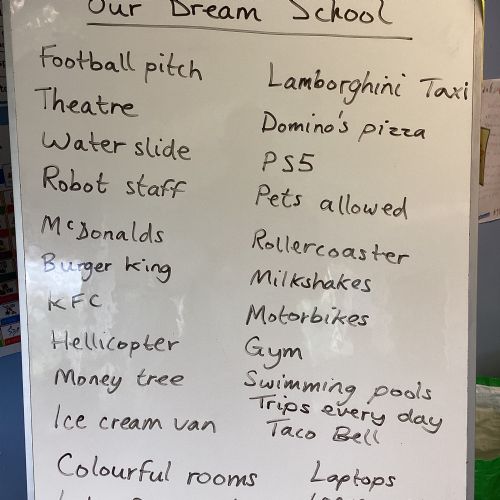 Our Dream School
Football pitch
Theatre
Water slide
Robot staff
McDonalds
Burger King
KFC
Hellicopter
Money tree
Ice cream van
Colourful rooms
Lamborghini Taxi
Domino's pizza
PS5
Pets allowed
Rollercoaster
Milkshakes
Motorbikes
Gym
Swimming pools
Trips every day
Taco Bell
Laptops